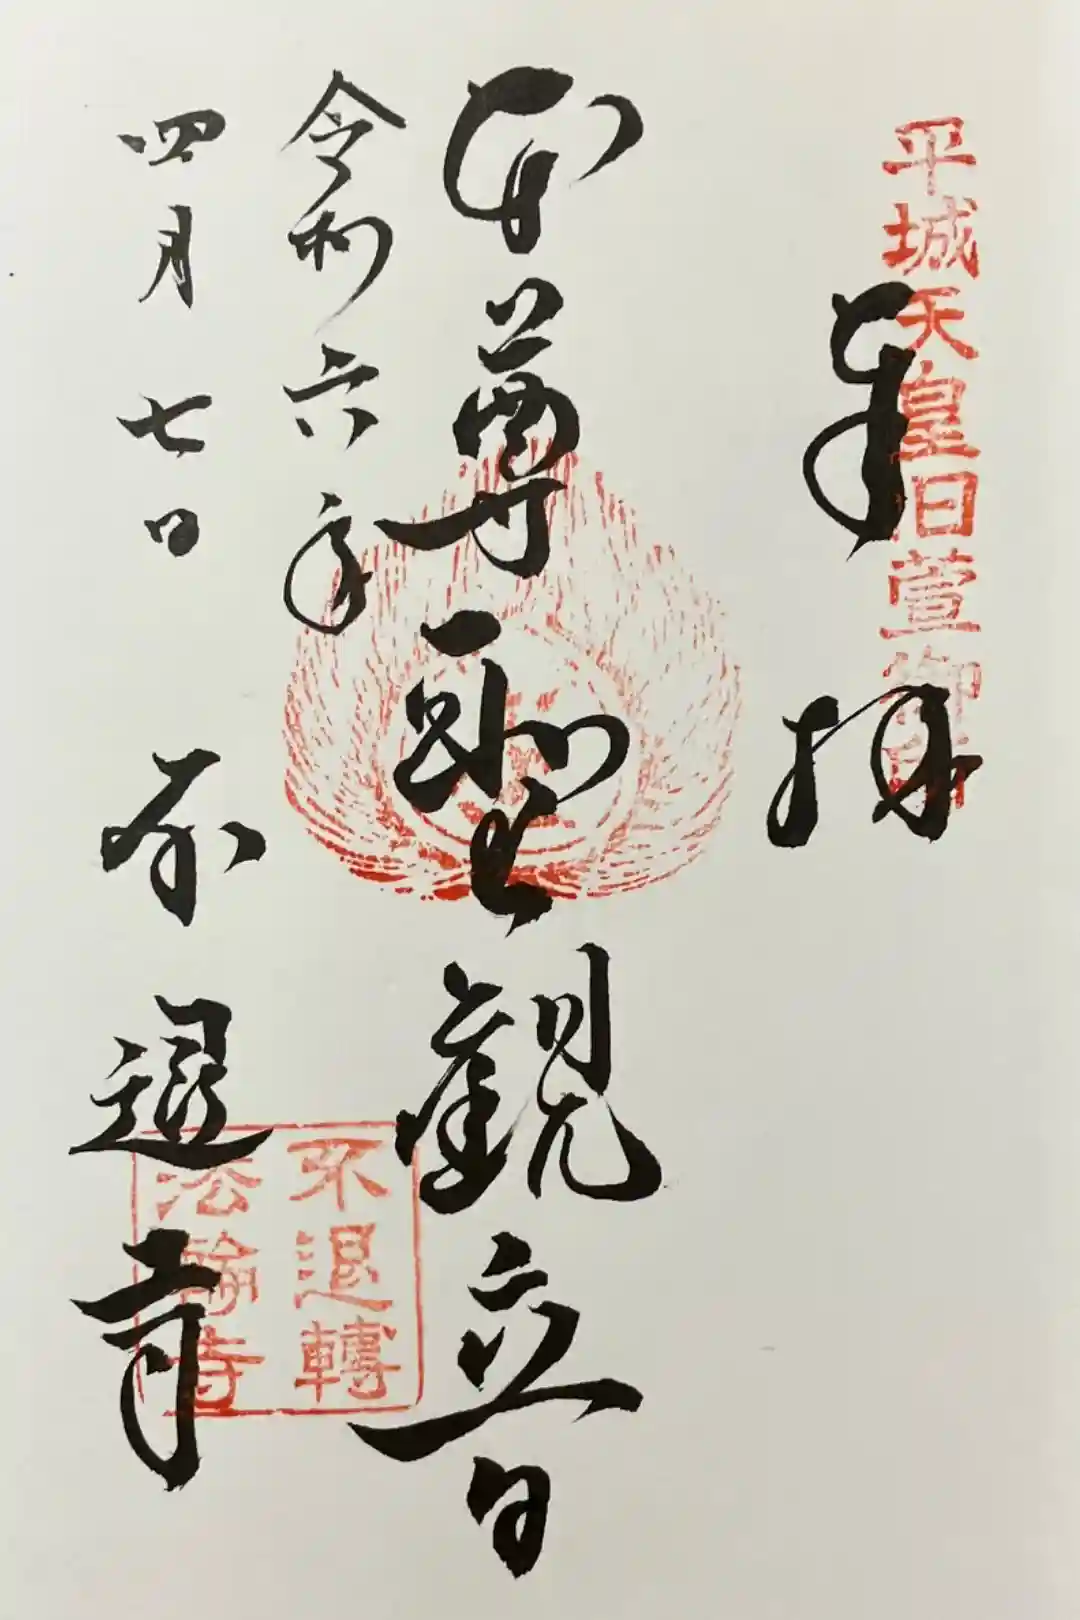 平城天皇旧萱御所
奉拝
本尊聖観立日
令和六年
四月七日
不退寺
不退轉
法輪寺